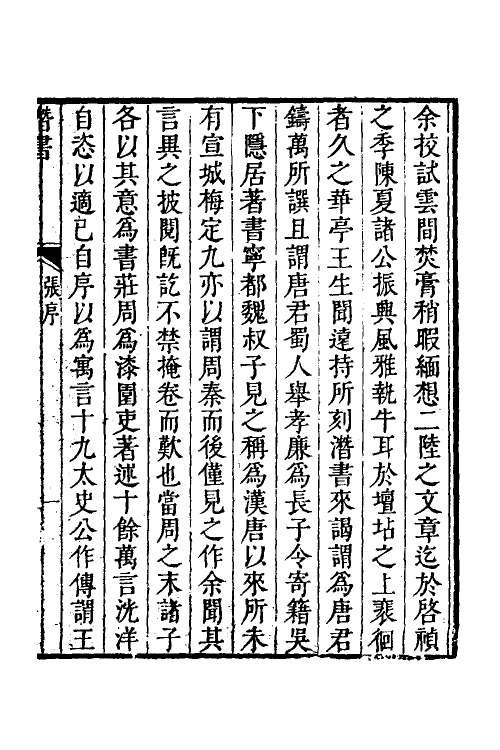 余校試雲間焚膏稍暇緬想二陸之文章迄於啓禎
之季陳夏諸公振興風雅執牛耳於壇坫之上裵徊
者久之華亭王生聞遠持所刻潛書來謁謂爲唐君
鑄萬所譔且謂唐君蜀人舉孝廉爲長子令寄籍吳
下隱居著書寧都魏叔子見之稱爲漢唐以來所未
有宣城梅定九亦以謂周秦而後僅見之作余聞其
言異之披閱旣訖不禁掩卷而歎也當周之末諸子
各以其意爲書莊周爲漆園吏著述十餘萬言洸洋
自恣以適己自序以爲寓言十九太史公作傳謂王
潛書
張序
一